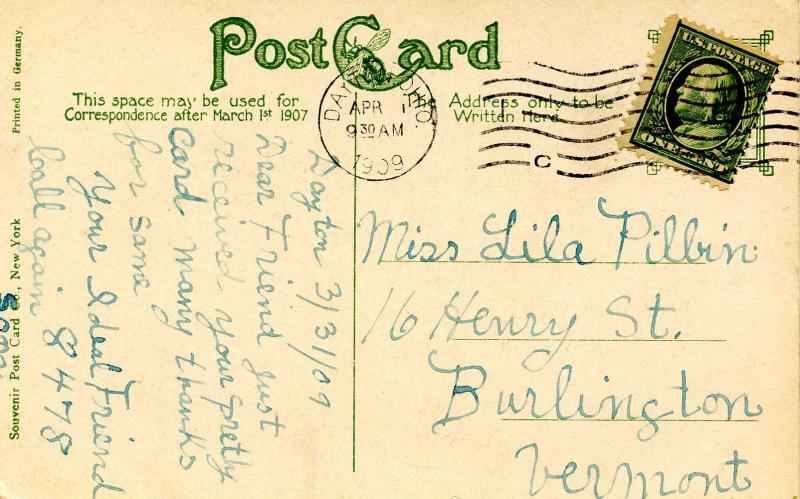 Post Card
This space may be used for
Correspondence after March 1st 1907
The Address only to be
Written Here
DAY OHIO.
APR 1
9 30 AM
1909
C
U.S. POSTAGE
ONE CENT
Dayton 3/31/09
Dear Friend Just
received your pretty
card many thanks
for same
Your Ideal Friend
Call again 8478
Miss Lila Pilbin
16 Henry St.
Burlington
Vermont
Printed in Germany.
Souvenir Post Card Co., New York